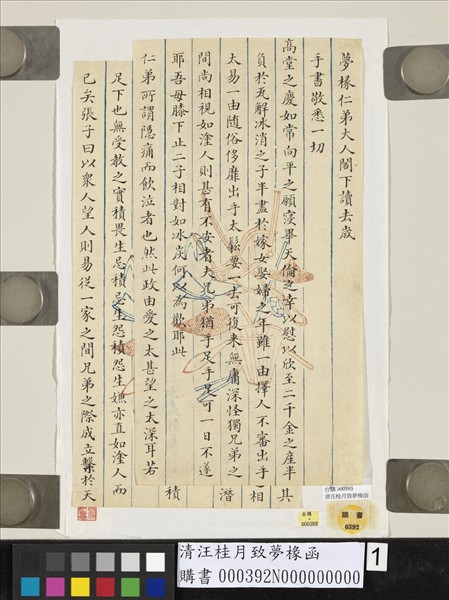 夢椽仁弟大人閣下讀去歲
手書敬悉一切
高堂之慶如常向平之願寖畢天倫之幸以慰以欣至二千金之產半
負於瓦解冰消之子半盡於嫁女娶婦之年雖一由擇人不審出手
太易一由隨俗侈靡出手太鬆要一去可復來無庸深怪獨兄弟之
間尚相視如塗人則甚有不安者夫兄弟猶手足手足可一日不遂
耶吾母膝下止二子相對如冰炭何以為歡耶此
仁弟所謂隱痛而飲泣者也然此政由愛之太甚望之太深耳若
足下也無受教之實積畏生忌積忌生怨積怨生嫌亦直如塗人而
已矣張子曰以眾人望人則易從一家之間兄弟之際成立繫於天
其相潛積
台購 000393
清汪桂月致夢椽函
台購
000393
購書
0392
清汪桂月致夢椽函
購書 000392N000000000
1